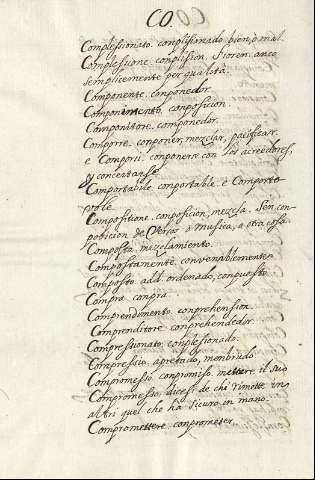 CO.
Complessionato. complisionado bien, o mal.
Complessione. complision. Fioren. anco
semplicemente per qualità.
Componente. componedor.
Componimento. conposicion.
Componitore. componedor.
Comporre. conponer, mezclar, pacificar.
e Comporsi. componerse con los acreedores,
y concertarse.
Comportabile. comportable. e Comporte
vole.
Compositione. conposicion, mezcla. Sen con
posicion de Obras o musica, a otra cosa.
Composta. mezclamiento.
Compostamente. convenablemente.
Composto. add. ordenado, conpuesto.
Compra. conpra.
Comprendimento. conprehension.
Comprenditore. conprehendedor.
Compressionato. conplesionado.
Compressio. apretado,
Compromesso. conpromiso. mettere il suo
Compromesso. dicesi de chi rimette in
altri quel che ha sicuro in mano.
Compromettere. conprometer.